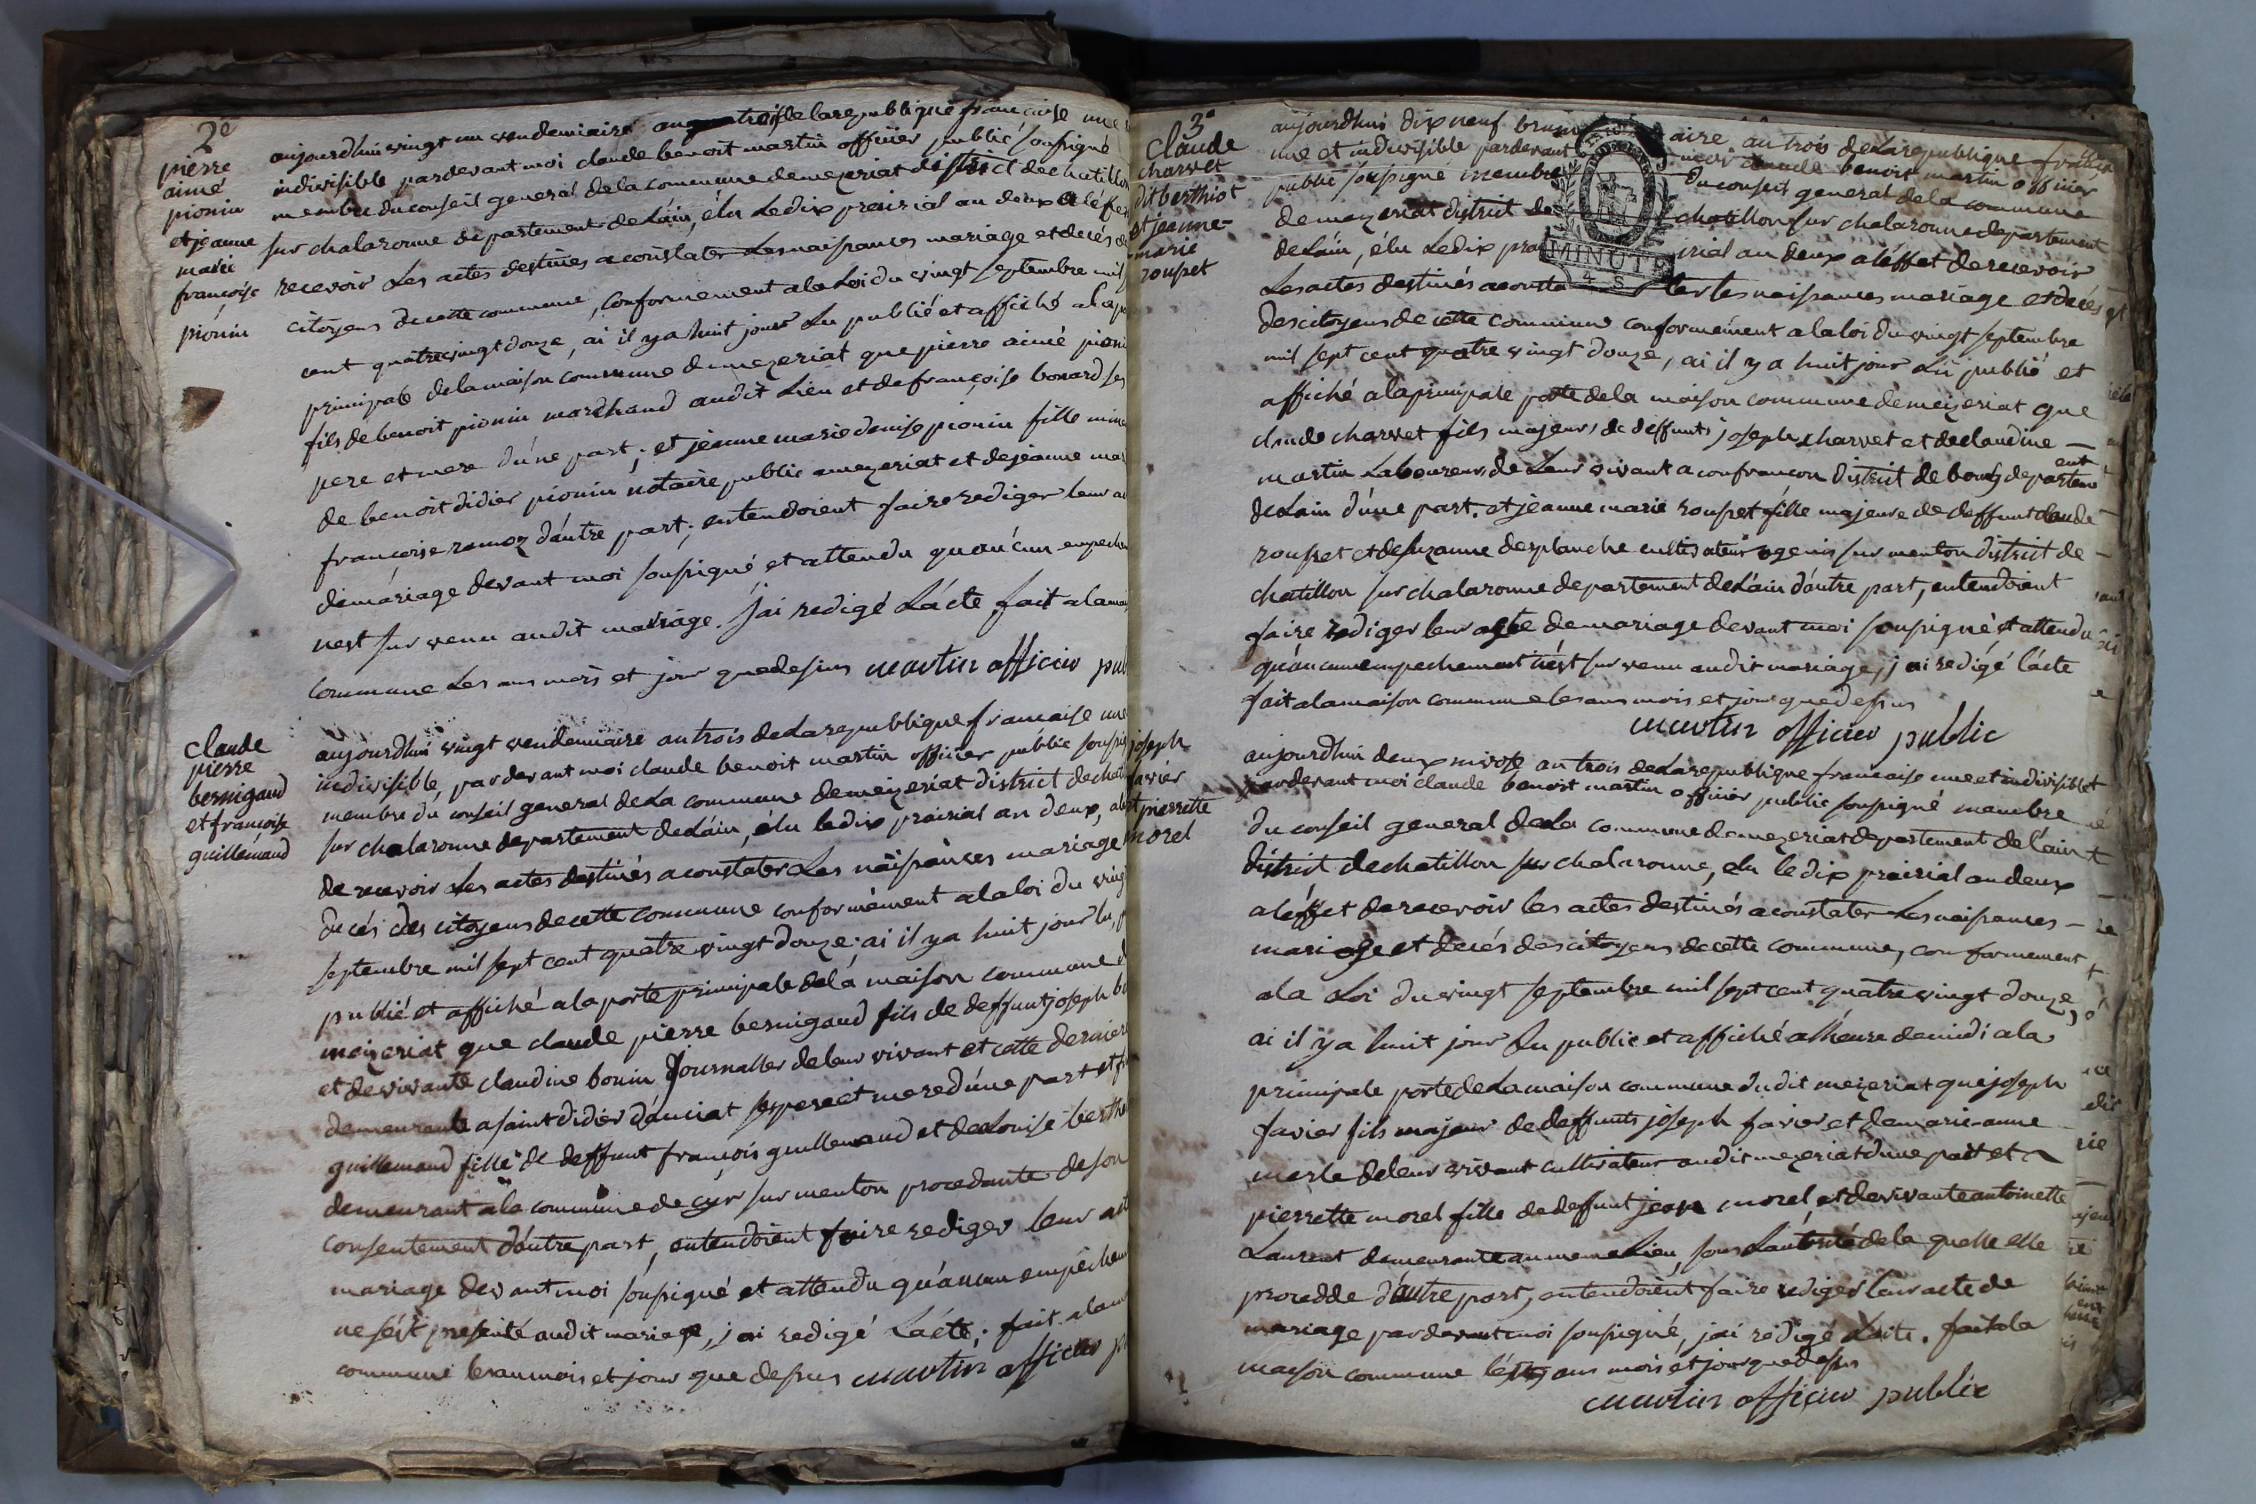 2e
pierre
aimé
pionin
et jeanne
marie
françoise
pionin
aujourdhui vingt un vendemiaire an trois de la republique française une
indivisible pardevant moi claude benoit martin officier public soussigné
membre du conseil general de la commune de mezeriat district de chatillon
sur chalaronne departement de Láin, élu Le dix prairial an deux a léfet
recevoir Les actes destinés a constater Les naissances mariage et decés des
citoyens de cette commune, conformement a la Loi du vingt septembre mil
cent quatre vingt douze, ai il y a huit jours Lu publié et affiché a la
principale de la maison commune de mezeriat que pierre aimé pionin
fils de benoit pionin marchand audit Lieu et de françoise bonard ses
pere et mere dúne part; et jeanne marie denise pionin fille mine
de benoit didier pionin notaire public a mezeriat et de jeanne mar
françoise ramoz dáutre part; entendoient faire rediger leur a
de mariage devant moi soussigné et attendu quaúcun empechem
nest survenu audit mariage. Jai redigé Lácte fait a la ma
commune Les ans mois et jour que dessus martin officier pub
claude
pierre
bernigaud
et françoise
guillemaud
aujourdhui vingt vendemiaire an trois de La republique francaise une
indivisible, pardevant moi claude benoit martin officier public soussig
membre du conseil general de La commune de mezeriat district de chati
sur chalaronne departement de Láin, élu le dix prairial an deux, a le
de recevoir Les actes destinés a constater Les naissances mariage
decés des citoyens de cette commune conformement a la loi du ving
septembre mil sept cent quatre vingt douze; ai il y a huit jour lu,
publié et affiché a la porte principale de la maison commune d
mezeriat que claude pierre bernigaud fils de deffunt joseph be
et de vivante claudine bonin Journallier de leur vivant et cette derniere
demeurante a saint didier dáuciat ses pere et mere dúne part et fr
guillemaud fille de deffunt françois guillemaud et de Louise berth
demeurant a la commune de cyr sur menton procedante de son
consentement dáutre part, entendoient faire rediger leur act
mariage devant moi soussigné et attendu quáucun empechem
ne sést présenté audit mariage, jai redigé Lácte; fait a la m
commune les an mois et jour que dessus martin officier p
3e
Claude
charvet
dit berthiot
et jeanne-
marie
rousset
aujourdhui dix neuf brumaire an trois de La republique française
une et indivisible pardevant moi claude benoit martin officier
public soussigné membre du conseil general de la commune
de mezeriat district de chatillon sur chalaronne departement
de Láin, élu Le dix prairial an deux a léffet de recevoir
MINUTE
4 S
Les actes destinés a constater les naissances mariage et decés
des citoyens de cette commune conformement a la loi du vingt septembre
mil sept cent quatre vingt douze, ai il y a huit jour Lu publié et
affiché a la principale porte de la maison commune de mezeriat que
claude charvet fils majeur de deffunts joseph charvet et de claudine
martin Laboureurs de Leur vivant a confrançon district de bourg departement
de Lain dúne part. et jeanne marie rousset fille majeure de deffunt claude
rousset et de suzanne desplanche cultivateur a genis sur menton district de
chatillon sur chalaronne departement de Láin dáutre part, entendoient
faire rediger leur acte de mariage devant moi soussigné et attendu
quáucun empechement nést survenu audit mariage, jai redigé lácte
fait a la maison commune les ans mois et jour que dessus
martin officier public
joseph
favier
et pierrette
morel
aujourdhui deux nivose an trois de La republique francaise une et indivisible
pardevant moi claude benoit martin officier public soussigné membre
du conseil general de La commune de mezeriat departement de láin
district de chatillon sur chalaronne, elu le dix prairial an deux
a léffet de recevoir les actes destinés a constater Les naissances
mariage et decés des citoyens de cette commune, conformement
a la Loi du vingt septembre mil sept cent quatre vingt douze,
ai il y a huit jour Lu public et affiché a lheure de midi a la
principale porte de La maison commune dudit mezeriat que joseph
favier fils majeur de deffunts joseph favier et de marie-anne
merle de leur vivant cultivateur audit mezeriat dune part et
pierrette morel fille de deffunt jean morel et de vivante antoinette
Laurent demeurante au meme Lieu, sous Láutorité de la quelle elle
procedde dáutre part, entendoient faire rediger leur acte de
mariage pardevant moi soussigné, jai rédigé Lacte. fait a la
maison commune les ans mois et jour que dessus
martin officier public